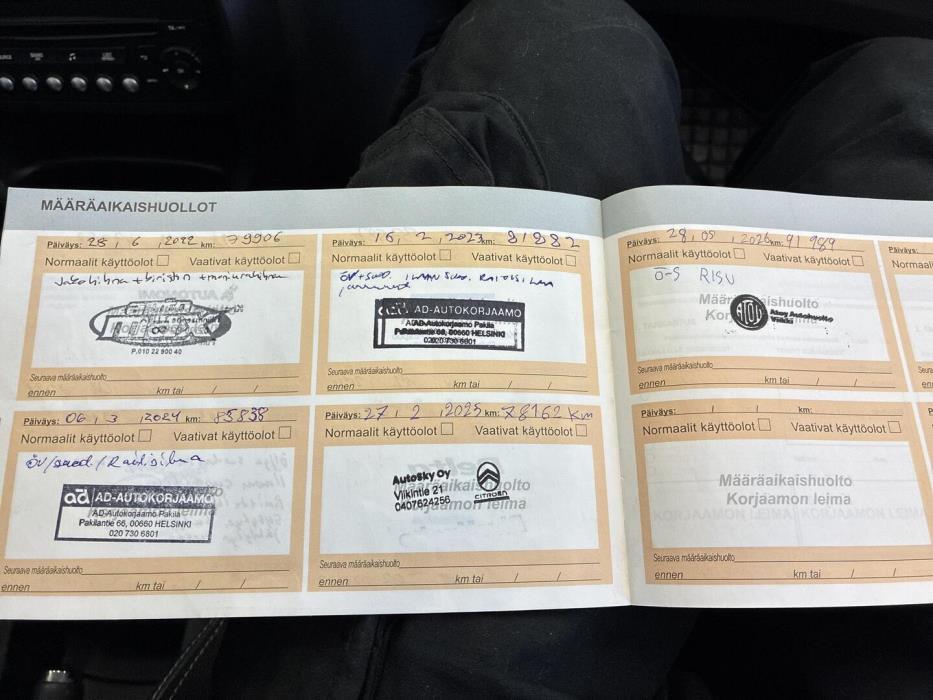 MÄÄRÄAIKAISHUOLLOT
Päiväys: 28 , 6 , 2022 km: 79906
Normaalit käyttöolot Vaativat käyttöolot
P.010 22 900 40
Seuraava määräaikaishuolto
ennen km tai / /
Päiväys: 16, 2 , 2023 km: 81882
Normaalit käyttöolot Vaativat käyttöolot
ÖV+SUOD.
ad AD-AUTOKORJAAMO
AD-Autokorjaamo Pakila
Pakilantie 66, 00660 HELSINKI
020 730 6801
Seuraava määräaikaishuolto
ennen km tai / /
Päiväys: 28, 05 , 2026 km: 91 989
Normaalit käyttöolot Vaativat käyttöolot
Ö-S RISU
Määräaikaishuolto
ATOY Atoy Autohuolto
Viikki
Seuraava määräaikaishuolto
ennen km tai / /
Päiväys: 06, 3 , 2024 km: 85838
Normaalit käyttöolot Vaativat käyttöolot
ÖV/suod./Raitisilma
ad AD-AUTOKORJAAMO
AD-Autokorjaamo Pakila
Pakilantie 66, 00660 HELSINKI
020 730 6801
Seuraava määräaikaishuolto
ennen km tai / /
Päiväys: 27, 2 , 2025 km: 78162 km
Normaalit käyttöolot Vaativat käyttöolot
AutoSky Oy
Viikintie 21
0407624256
CITROËN
Määräaikaishuolto
Korjaamon leima
Seuraava määräaikaishuolto
ennen km tai / /
Päiväys: / / km:
Normaalit käyttöolot Vaativat käyttöolot
Määräaikaishuolto
Korjaamon leima
Seuraava määräaikaishuolto
ennen km tai / /